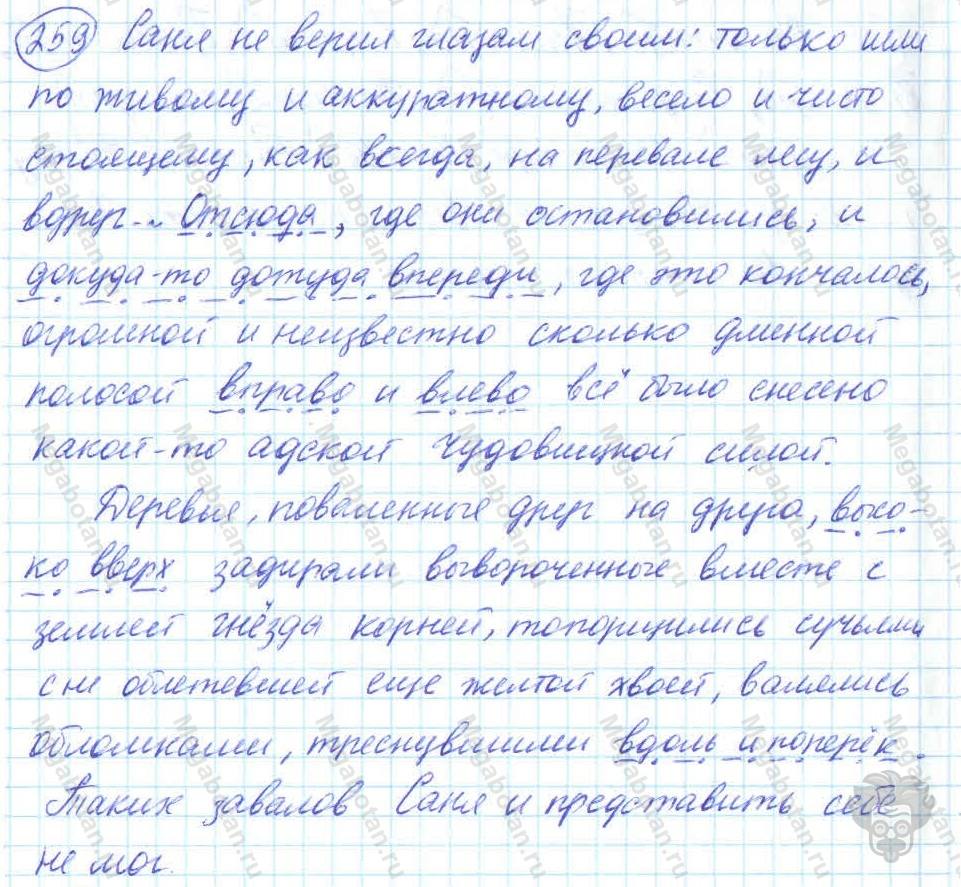 259 Саня не верил глазам своим: только шли
по живому и аккуратному, весело и чисто
стоящему, как всегда, на перевале лесу, и
вдруг... Отсюда, где они остановились, и
докуда-то дотуда впереди, где это кончалось,
огромной и неизвестно сколько длинной
полосой вправо и влево всё было снесено
какой-то адской чудовищной силой.
Деревья, поваленные друг на друга, высо-
ко вверх задирали вывороченные вместе с
землёй гнёзда корней, топорщились сучьями
с не облетевшей еще желтой хвоей, валялись
обломками, треснувшими вдоль и поперёк.
Таких завалов Саня и представить себе
не мог.
Megabotan.ru